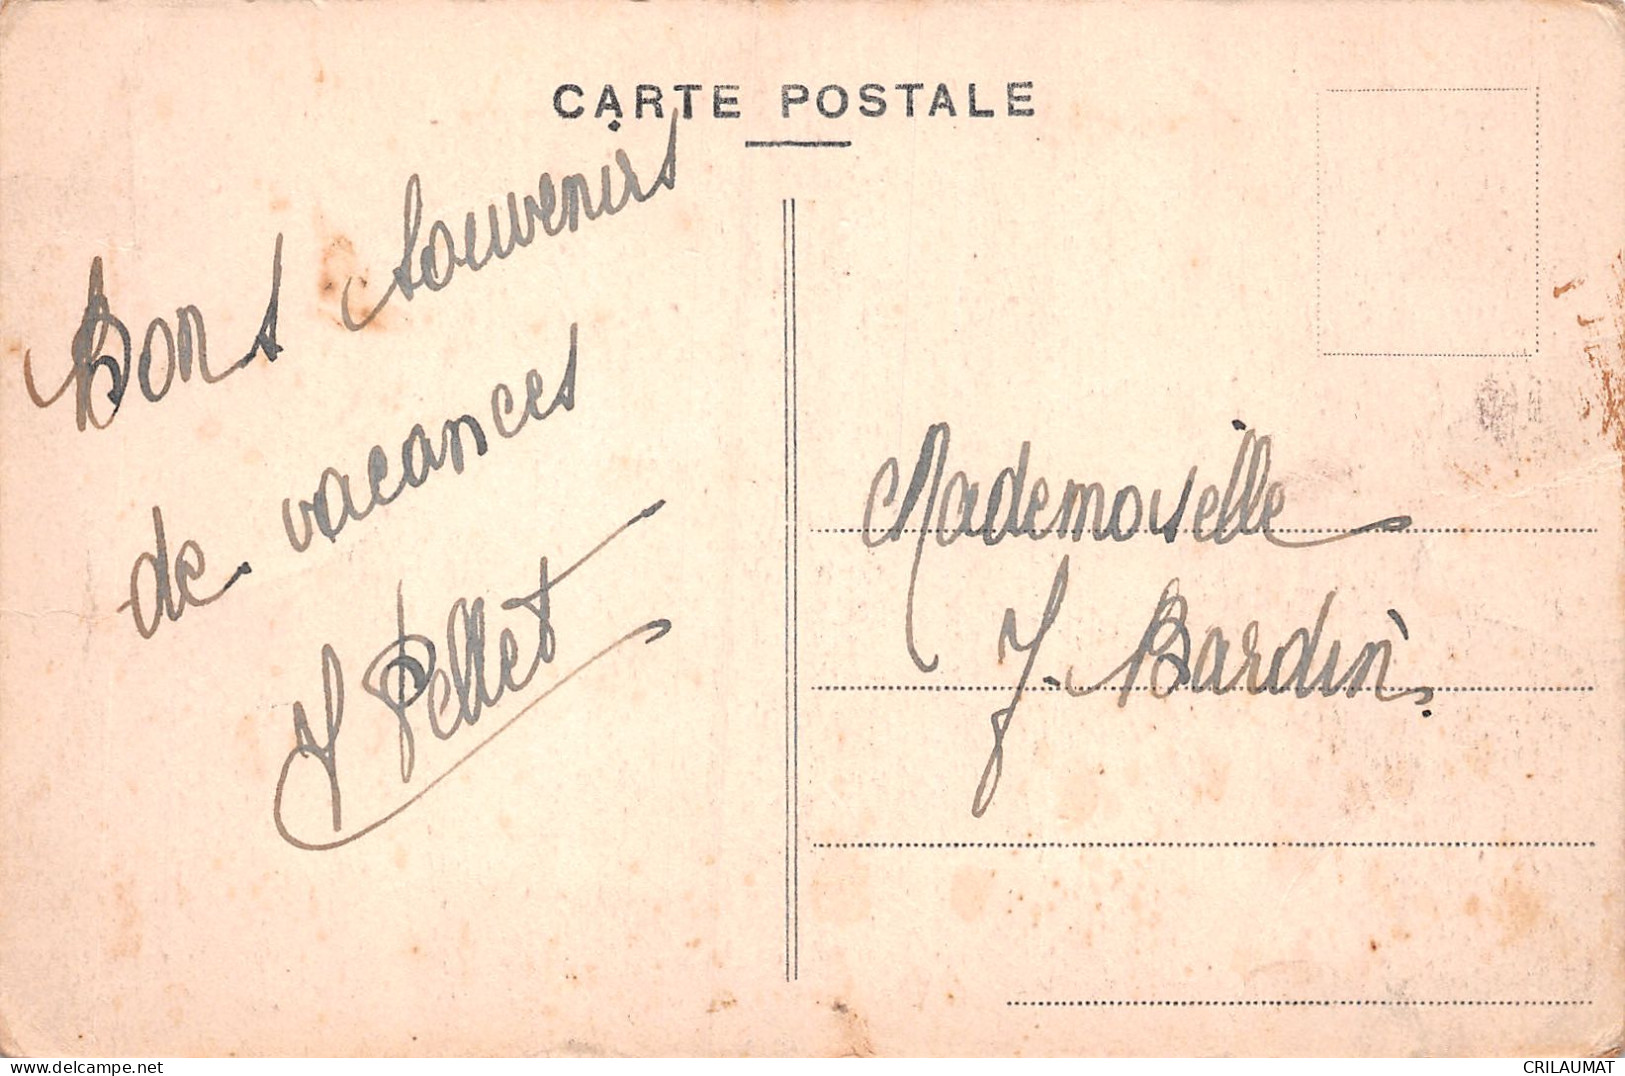 CARTE POSTALE
Bons souvenirs
de vacances
Pellet
Mademoiselle
J. Bardin.
delcampe.net
CRILAUMAT